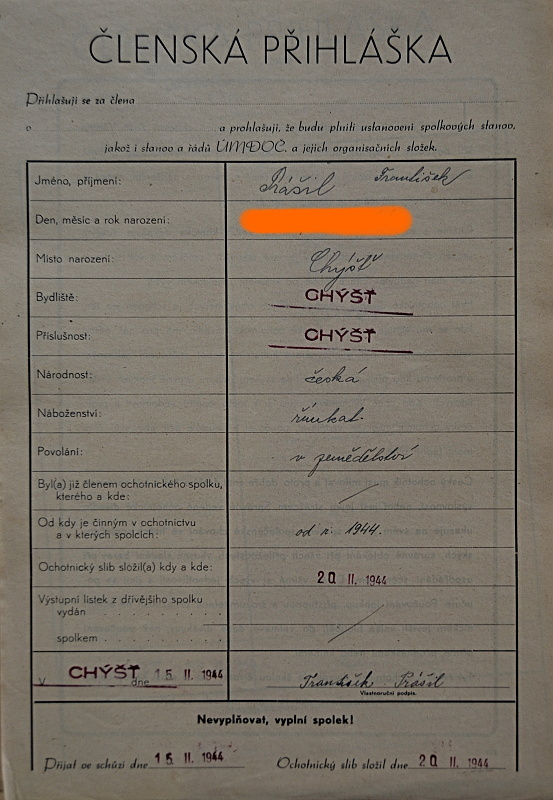 ČLENSKÁ PŘIHLÁŠKA
Přihlašuji se za člena
v a prohlašuji, že budu plniti ustanovení spolkových stanov,
jakož i stanov a řádů ÚMDOČ. a jejich organisačních složek.
Jméno, příjmení: Prášil František
Den, měsíc a rok narození:
Místo narození: Chýšť
Bydliště: CHÝŠŤ
Příslušnost: CHÝŠŤ
Národnost: česká
Náboženství: římkat.
Povolání: v zemědělství
Byl(a) již členem ochotnického spolku,
kterého a kde: /
Od kdy je činným v ochotnictvu
a v kterých spolcích: od r. 1944.
Ochotnický slib složil(a) kdy a kde: 20 II. 1944
Výstupní lístek z dřívějšího spolku
vydán
spolkem /
V CHÝŠŤ dne 15. II. 1944 František Prášil
Vlastnoruční podpis.
Nevyplňovat, vyplní spolek!
Přijat ve schůzi dne 15. II. 1944 Ochotnický slib složil dne 20 II. 1944